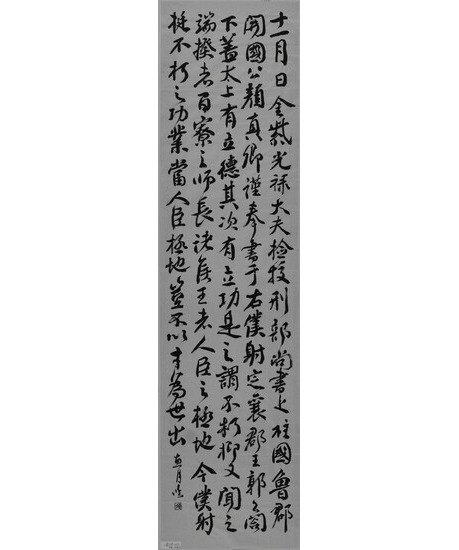 十一月日金紫光祿大夫檢校刑部尚書上柱國魯郡
開國公顏真卿謹奉書于右僕射定襄郡王郭公閣
下蓋太上有立德其次有立功是之謂不朽抑又聞之
端揆者百寮之師長諸侯王者人臣之極地今僕射
挺不朽之功業當人臣極地豈不以才為世出